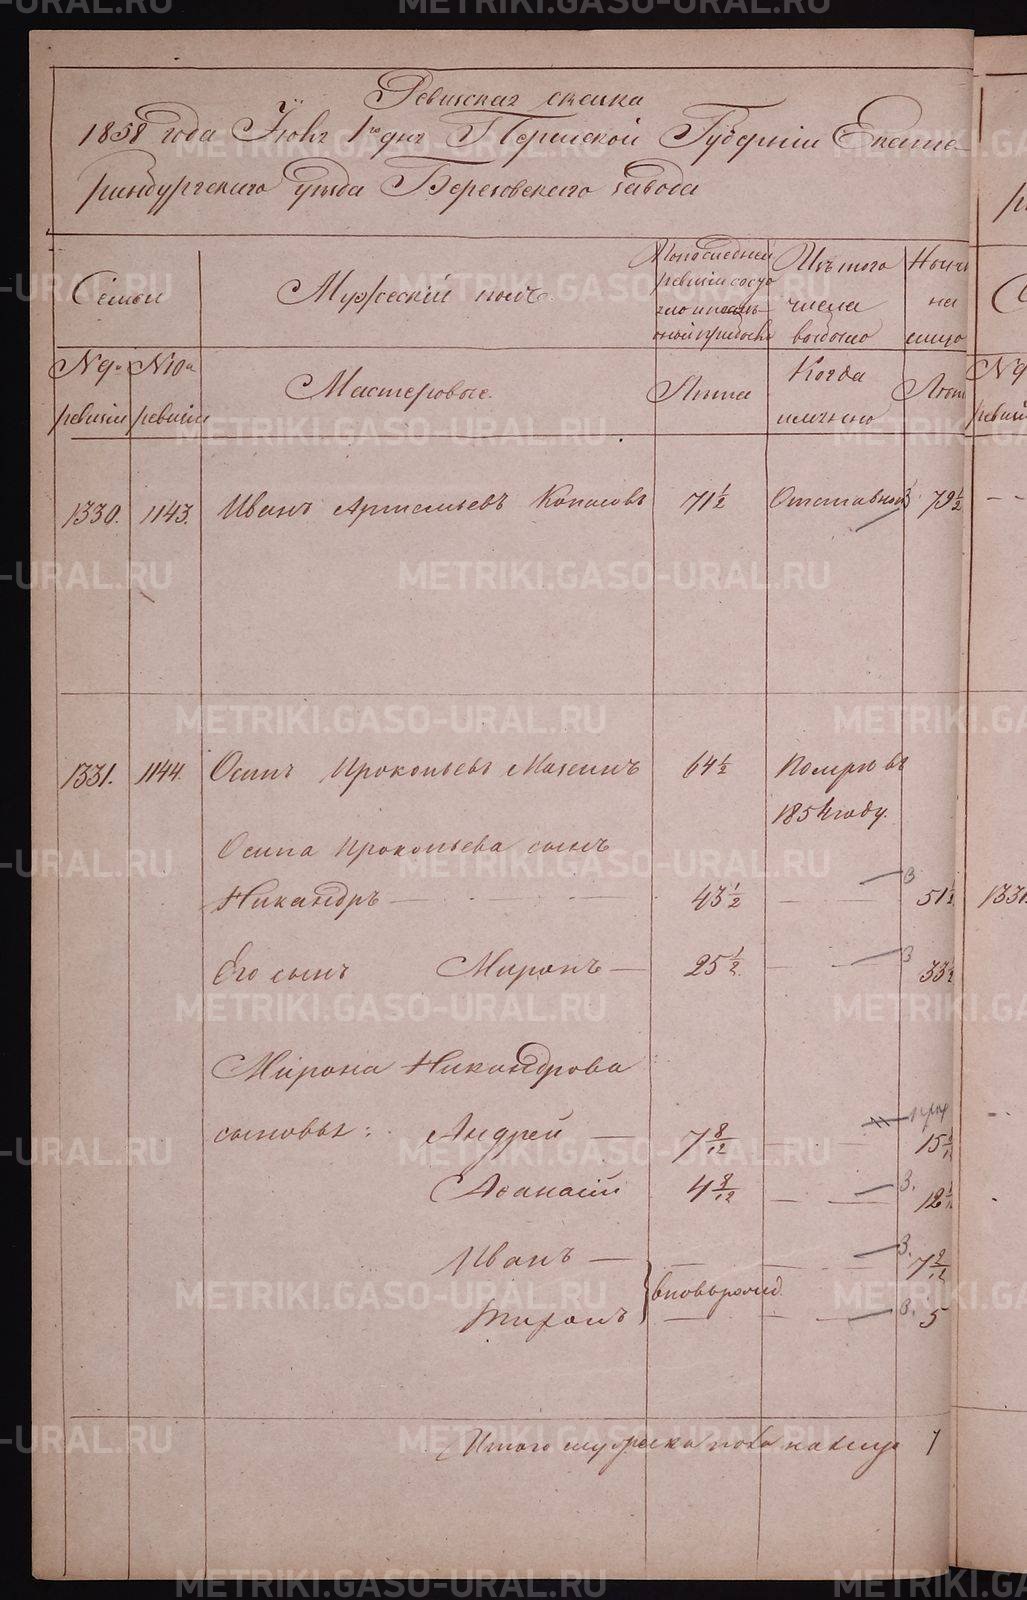 Ревизская сказка
1858 года Іюня 1го дня Пермской Губерніи Екате-
ринбургскаго уѣзда Березовскаго завода
Семьи
Мужескій полъ.
По последней ревизіи состояло и после оной прибыло
Изъ того числа выбыло
Нынѣ на лицо
№ 9й ревизіи
№ 10й ревизіи
Мастеровые.
Лѣта
Когда именно
Лѣта
1330. 1143. Иванъ Артемьевъ 71½ Отставной 79½
1331. 1144. Осипъ Прокопьевъ 64½ Померъ въ
1854 году.
Осипа Прокопьева сынъ
Никандръ — 43½ — 51½
Его сынъ Миронъ — 25½ — 33½
Мирона Никандрова
сыновья: Андрей — 7 8/12 — 15
Афанасій 4 8/12 — 12
Иванъ — 7 8/12
вновь рожд.
Тихонъ — 5
Итого мужеска пола налицо 7
1331
METRIKI.GASO-URAL.RU